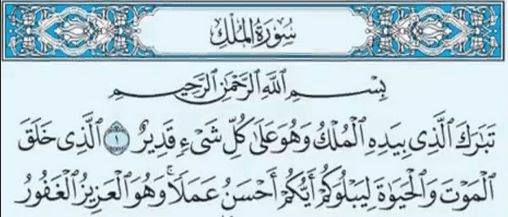 سُورَةُ المُلْكِ
بِسْمِ اللَّهِ الرَّحْمَٰنِ الرَّحِيمِ
تَبَارَكَ الَّذِي بِيَدِهِ الْمُلْكُ وَهُوَ عَلَىٰ كُلِّ شَيْءٍ قَدِيرٌ ١ الَّذِي خَلَقَ
الْمَوْتَ وَالْحَيَوٰةَ لِيَبْلُوَكُمْ أَيُّكُمْ أَحْسَنُ عَمَلًا ۚ وَهُوَ الْعَزِيزُ الْغَفُورُ